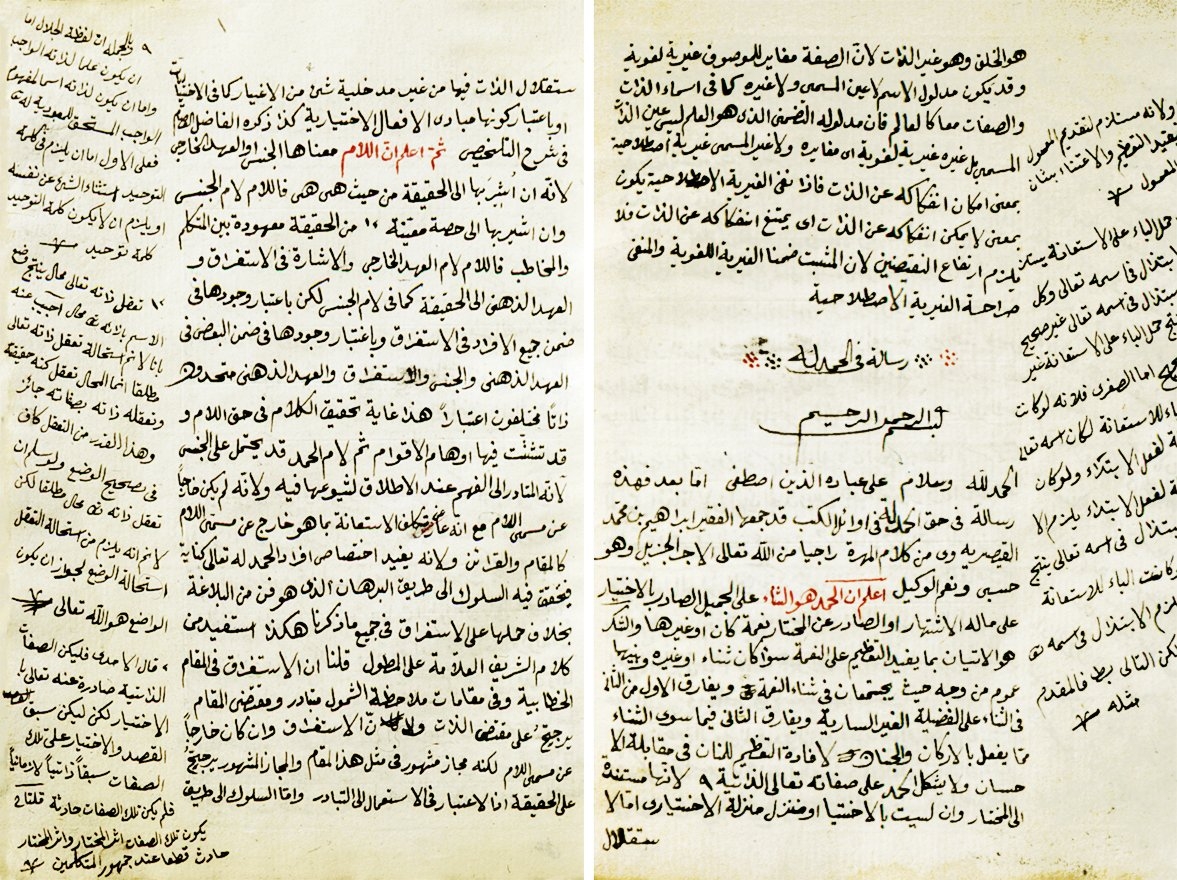 هو الخلق وهو غير الذات لان الصفة مغاير للموصوف غيرية لغوية
وقد يكون مدلول الاسم لاعين المسمى ولا غيره كما فى اسماء الذات
والصفات معا كالعالم فان مدلوله التضمنى الذى هو العلم ليس عين الذات
المسمى بل غيره غيرية لغوية اى مغايره ولا غير المسمى غيرية اصطلاحية
بمعنى امكان انفكاكه عن الذات فاذا نفى الغيرية الاصطلاحية يكون
بمعنى لا يمكن انفكاكه عن الذات اى يمتنع انفكاكه عن الذات فلا
يلزم ارتفاع النقيضين لان المثبت ضمنا الغيرية اللغوية والمنفى
صراحة الغيرية الاصطلاحية
رسالة فى الحمد لله
بسم الله الرحمن الرحيم
الحمد لله وسلام على عباده الذين اصطفى اما بعد فهذه
رسالة فى حق الحمدلة فى اوائل الكتب قد جمعها الفقير ابراهيم بن محمد
القيصريه وى من كلام المهرة راجيا من الله تعالى الاجر الجزيل وهو
حسبى ونعم الوكيل اعلم ان الحمد هو الثناء على الجميل الصادر بالاختيار
على ماله الاشتهار او الصادر عن المختار نعمة كان او غيرها والشكر
هو الاتيان بما يفيد التعظيم على النعمة سواء كان ثناء او غيره وبينهما
عموم من وجه حيث يجتمعان فى ثناء النعمة ويفارق الاول من الثانى
فى الثناء على الفضيلة الغير السارية ويفارق الثانى فيما سوى الثناء
مما يفعل بالاركان والجنان لافادة التعظيم للمنان فى مقابلة الا
حسان ولا يشكل الحمد على صفاته تعالى الذاتية ٩ لانها مستندة
الى المختار وان لسيت بالاختيار او منزل منزلة الاختيارى اما لا
ستقلال
ولانه مستلزم لتقديم المعمول
يفيد التعظيم والاعتناء بشان
المعمول
حمل الباء على الاستعانة يستلزم
ابتذال فى اسمه تعالى وكل
ابتذال فى اسمه تعالى غير صحيح
ينتج حمل الباء على الاستعانة غير
صحيح اما الصغرى فلانه لو كانت
الباء للاستعانة لكان اسمه تعالى
لفعل الابتداء ولو كان
لفعل الابتداء يلزم الا
بتذال فى اسمه تعالى ينتج
لو كانت الباء للاستعانة
يلزم الابتذال فى اسمه تعالى
لكن التالى بط فالمقدم
مثله
ستقلال الذات فيها من غير مدخلية شئ من الاغيار كما فى الاختياريات
او باعتبار كونها مبادى الافعال الاختيارية كذا ذكره الفاضل
فى شرح التلخيص ثم اعلم ان اللام معناها الجنس او العهد الخارجى
لانه ان اشير بها الى الحقيقة من حيث هى هى فاللام لام الجنس
وان اشير بها الى حصة معينة من الحقيقة معهودة بين المتكلم
والمخاطب فاللام لام العهد الخارجى والاشارة فى الاستغراق و
العهد الذهنى الى الحقيقة كما فى لام الجنس لكن باعتبار وجودها فى
ضمن جميع الافراد فى الاستغراق وباعتبار وجودها فى ضمن البعض فى
العهد الذهنى والجنس والاستغراق والعهد الذهنى متحدون
ذاتا مختلفون اعتبارا هذا غاية تحقيق الكلام فى حق اللام و
قد تشتت فيها اوهام الاقوام ثم لام الحمد قد يحتمل على الجنس
لانه المتبادر الى الفهم عند الاطلاق لشيوعها فيه ولانه لم يكن خارجا
عن مسمى اللام مع انه عار عن تكلف الاستعانة بما هو خارج عن مسمى اللام
كالمقام والقرائن ولانه يفيد اختصاص افراد الحمد له تعالى كناية
فيحقق فيه السلوك الى طريق البرهان الذى هو فن من البلاغة
بخلاف حملها على الاستغراق فى جميع ما ذكرنا هكذا استفيد من
كلام الشريف العلامة على المطول قلنا ان الاستغراق فى المقام
الخطابية وفى مقامات ملاحظة الشمول متبادر ومقتضى المقام
يرجح على مقتضى الذات ولان الاستغراق وان كان خارجا
عن مسمى اللام لكنه مجاز مشهور فى مثل هذا المقام والمجاز المشهور يرجح
على الحقيقة اذ الاعتبار فى الاستعمال الى التبادر واما السلوك الى طريق
٩ وبالجملة ان لفظة الجلال اما
ان يكون علما لذاته الواجب
واما ان يكون لذاته اسما لمفهوم
الواجب المستحق للعبودية له تعالى
فعلى الاول اما ان يلزم فى كلمة
التوحيد استثناء الشئ عن نفسه
او يلزم ان لا يكون كلمة التوحيد
كلمة توحيد
تعقل ذاته تعالى محال ينتج وضع
الاسم بازائه تعالى محال اجيب عنه
بانا لا نم استحالة تعقل ذاته تعالى
مطلقا انما المحال تعقل كنه حقيقته
وتعقله ذاته بصفاته جائز
وهذا القدر من التعقل كاف
فى تصحيح الوضع ولو سلم ان
تعقل ذاته تعالى محال مطلقا لكن
لا نم انه يلزم من استحالة التعقل
استحالة الوضع لجواز ان يكون
الواضع هو الله تعالى
قال الامدى فليكن الصفات
الذاتية صادرة عنه تعالى با
الاختيار لكن ليكن سبق
القصد والاختيار على تلك
الصفات سبقا ذاتيا لا زمانيا
فلم يكن تلك الصفات حادثة قلنا لا
يكون تلك الصفات اثر المختار واثر المختار
حادث قطعا عند جمهور المتكلمين